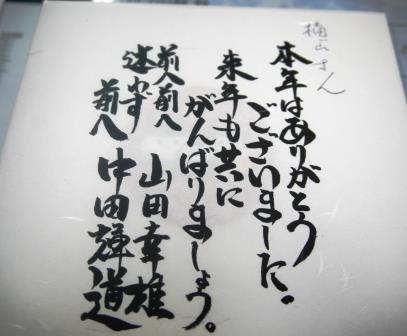 楠山さん
本年はありがとう
ございました。
来年も共に
がんばりましょう。
前へ前へ 山田幸雄
迷わず
前へ 中田輝道